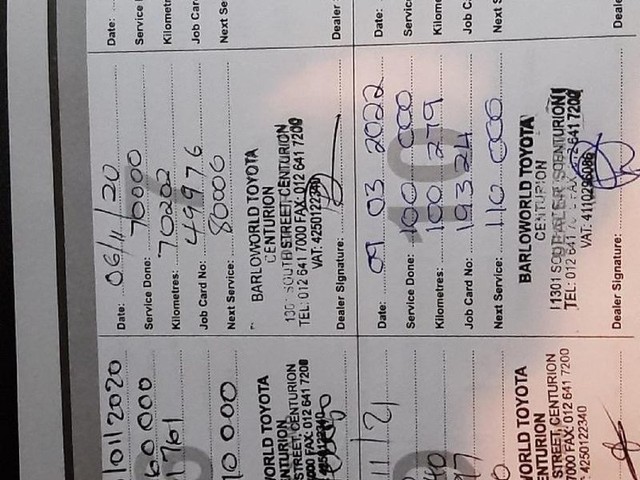 Date:
Service
Kilometres
Job Card
Next Se
Dealer S
Date: 06/11/20
Service Done: 70000
Kilometres: 70202
Job Card No: 49976
Next Service: 80000
BARLOWORLD TOYOTA
CENTURION
SOUTH STREET CENTURION
TEL: 012 641 7000 FAX: 012 641 7200
Dealer Signature:
/01/2020
60 000
1761
70 000
WORLD TOYOTA
ENTURION
STREET, CENTURION
000 FAX: 012 641 7200
Date:
Service
Kilometr
Job Car
Next Se
Dealer
10
Date: 09 03 2022
Service Done: 100 000
Kilometres: 100 279
Job Card No: 19324
Next Service: 110 000
BARLOWORLD TOYOTA
CENTURION
TEL: 012 641
FAX: 012 641 7200
Dealer Signature:
11/21
WORLD TOYOTA
ENTURION
STREET, CENTURION
7000 FAX: 012 641 7200
: 4250122340